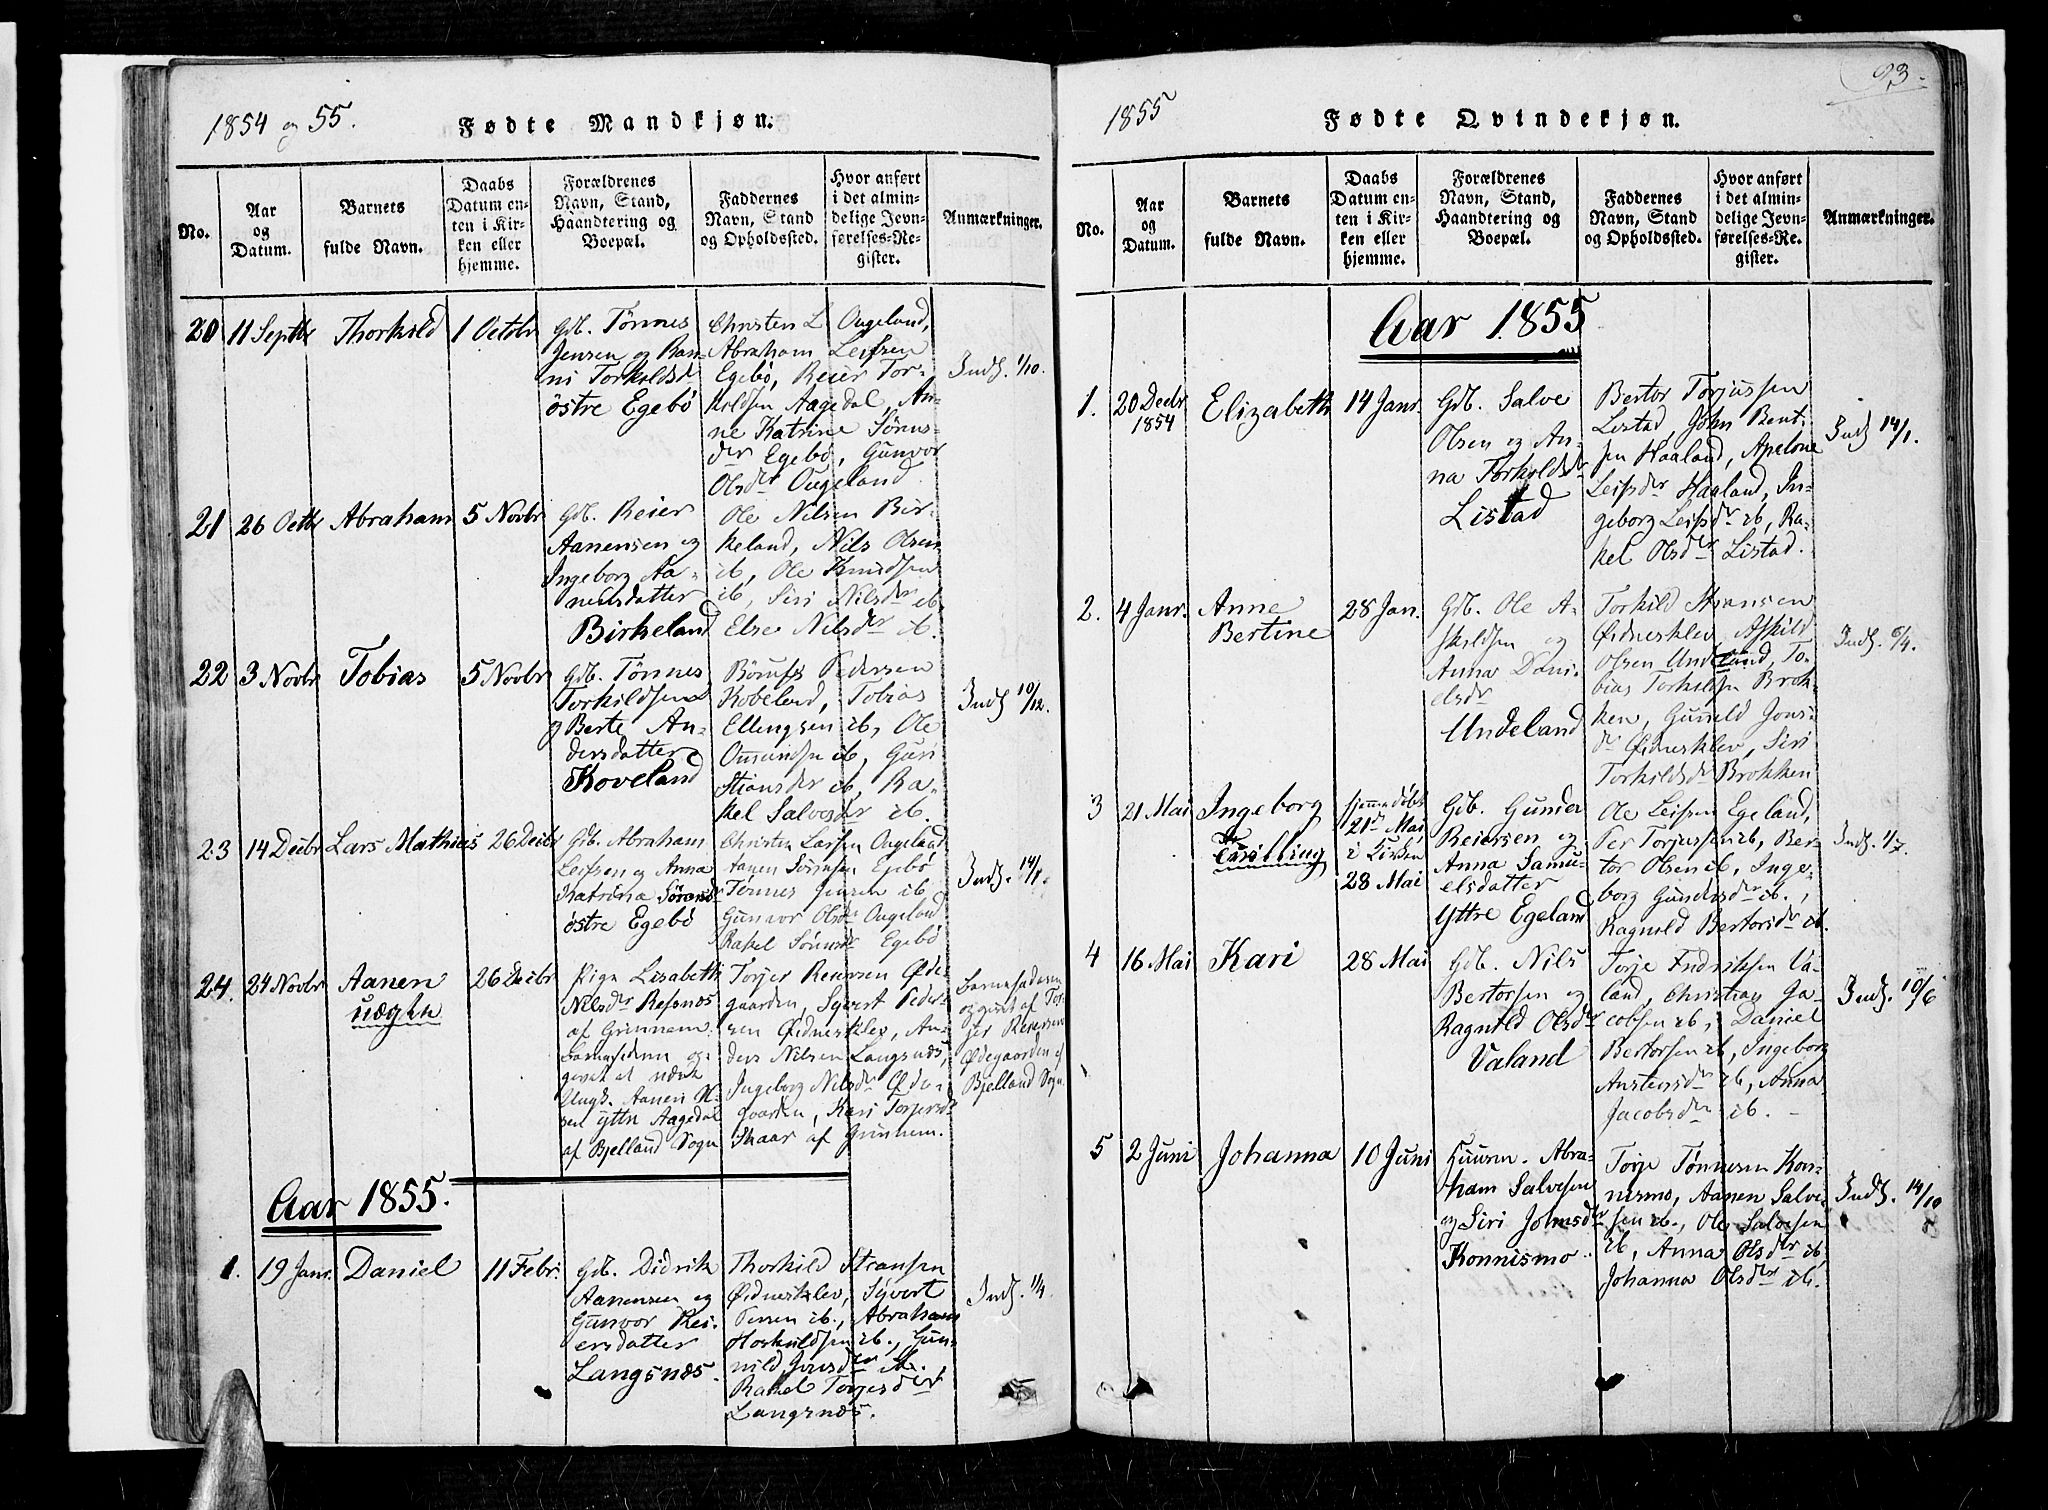 1854 og 55.
Fødte Mandkjøn.
No.
Aar og Datum.
Barnets fulde Navn.
Daabs Datum enten i Kirken eller hjemme.
Forældrenes Navn, Stand, Haandtering og Boepæl.
Faddernes Navn, Stand og Opholdssted.
Hvor anført i det almindelige Jevnførelses-Register.
Anmærkninger.
20 11 Septbr Thorkild 1 Octobr
Gdb. Tønnes
Jensen og Ran-
ni Torkildsd
östre Egebö
Christen L Ougeland,
Abraham Leifsen
Egebö, Reier Tor-
kildsen Aagedal, An-
ne Katrine Sörens-
dr Egebö, Gunvor
Olsdr Ougeland
Indf. 1/10.
21 26 Octbr Abraham 5 Novbr
Gdb. Reier
Aanensen og
Ingeborg Aa-
nensdatter
Birkeland
Ole Nilsen Bir-
keland, Nils Olsen
ib, Ole Knudsen
ib, Siri Nilsdr ib
Else Nilsdr ib.
22 3 Novbr Tobias 5 Novbr
Gdb. Tönnes
Torkildsen
og Berte An-
dersdatter
Koveland
Pedersen
Kobeland, Tobias
Ellingsen ib, Ole
Omundsen ib, Guri
Stiansdr ib, Ra-
kel Salvesdr ib.
Indf 10/12.
23 14 Decbr Lars Mathias 26 Decbr
Gdb. Abraham
Leifsen og Anna
Katrina Sörensd
östre Egebö
Christen Larsen Ougeland
Aanen Sörensen Egebö
Tönnes Jensen ib
Gunvor Olsdr Ougeland
Rakel Sönnesdr Egebö
Indf. 14/1.
24. 24 Novbr Aanen 26 Decbr
uægte
Pige Lisabeth
Nilsdr Refsnos
af Grinnem.
Barnefaderen op-
givet at være
Ungk. Aanen
ytre Aagedal
af Bjelland Sogn
Torjer Reiersen Öde-
gaarden, Syvert Peder-
sen Öidnesklev, An-
ders Nilsen Langsnæs,
Ingeborg Nilsdr Öde-
gaarden, Kari Torjersdr
Skaar af Grinhem.
Barnefaderen
opgivet af Tor-
jer Reiersen
Ödegaarden af
Bjelland Sogn.
Aar 1855.
1. 19 Janr. Daniel 11 Febr.
Gdb. Didrik
Aanensen og
Gunvor Rei-
ersdatter
Langsnæs.
Thorkild Stiansen
Öidnesklev, Syvert
ib., Abraham
Thorkildsen ib., Gun-
nild Jonsdr ib.
Rakel Torjesdr
Langsnæs.
Indf. 1/4.
1855
Fødte Qvindekjøn.
93.
No.
Aar og Datum.
Barnets fulde Navn.
Daabs Datum enten i Kirken eller hjemme.
Forældrenes Navn, Stand, Haandtering og Boepæl.
Faddernes Navn, Stand og Opholdssted.
Hvor anført i det almindelige Jevnførelses-Register.
Anmærkninger.
Aar 1855
1. 20 Decbr 1854 Elizabeth 14 Janr.
Gdb. Salve
Olsen og An-
na Torkildsdr
Listad
Bertor Torjussen
Listad, John Bent-
sen Haaland, Apelone
Leifsdr Haaland, In-
geborg Leifsdr ib, Ra-
kel Olsdr Listad.
Indf 14/1.
2. 4 Janr. Anne Bertine 28 Jan.
Gdb. Ole A-
skildsen og
Anna Dani-
elsdr
Undeland
Torkild Stiansen
Öidnesklev, Askild
Olsen Undeland, To-
bias Torkildsen Brok-
ken, Gunild Jons-
dr Öidnesklev, Siri
Torkildsdr Brokken
Indf. 6/4.
3 21 Mai Ingeborg
Tvilling
hjemmedöbt
21de Mai,
i Kirken
28 Mai
Gdb. Gunder
Reiersen og
Anna Samu-
elsdatter
Yttre Egeland
Ole Leifsen Egeland,
Per Torjussen ib, Ber-
tor Olsen ib, Inge-
borg Gundersdr ib.,
Ragnild Bertorsdr ib.
Indf. 1/7.
4 16 Mai Kari 28 Mai
Gdb. Nils
Bertorsen og
Ragnild Olsdr
Valand
Torje Fredriksen Va-
land, Christian Ja-
cobsen ib, Daniel
Bertorsen ib, Ingeborg
Anstensdr ib, Anna
Jacobsdr ib.
Indf. 10/6
5 2 Juni Johanna 10 Juni
Huusm. Abra-
ham Salvesen
og Siri Johnsdr
Konnismo.
Torje Tönnesen Kon-
nismo, Aanen Salve-
sen ib., Ole Salvesen
ib, Anna Olsdr ib
Johanna Olsdr ib.
Indf. 14/10